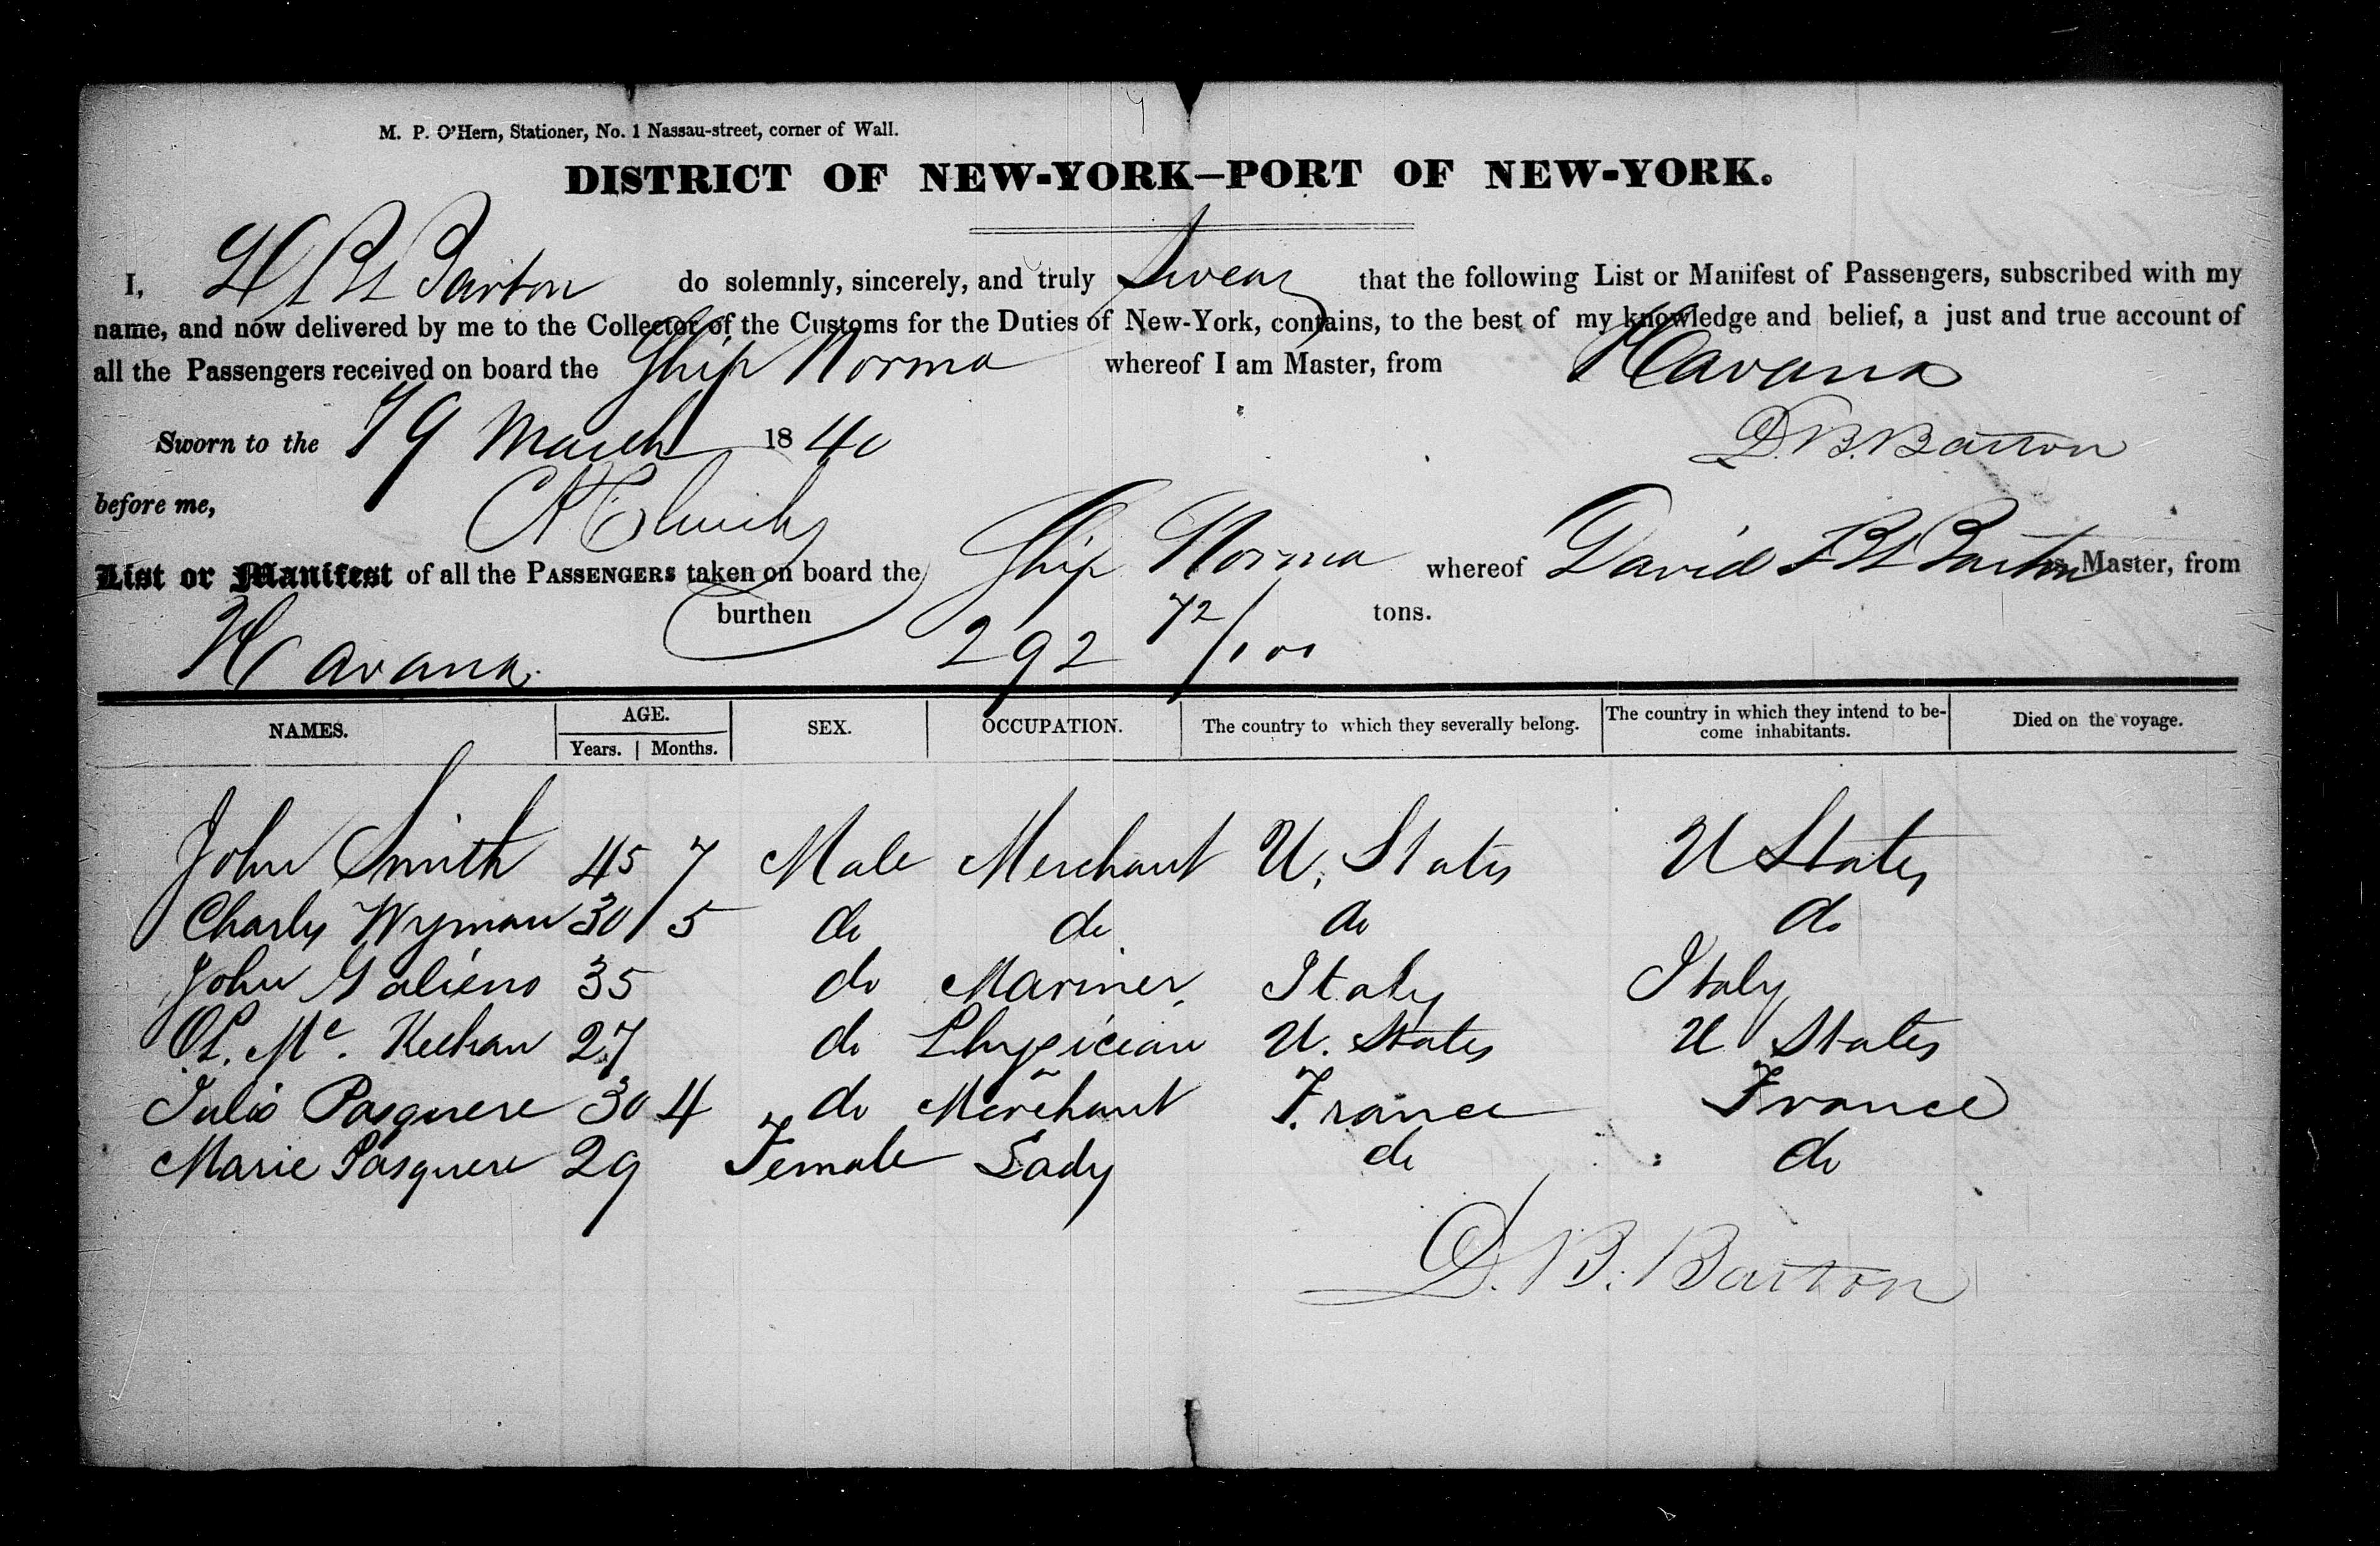 M. P. O'Hern, Stationer, No. 1 Nassau-street, corner of Wall.
DISTRICT OF NEW-YORK—PORT OF NEW-YORK.
I, Barton do solemnly, sincerely, and truly Swear that the following List or Manifest of Passengers, subscribed with my
name, and now delivered by me to the Collector of the Customs for the Duties of New-York, contains, to the best of my knowledge and belief, a just and true account of
all the Passengers received on board the Ship Norma whereof I am Master, from Havana
Sworn to the 19 March 1840 D. B. Barton
before me,
List or Manifest of all the PASSENGERS taken on board the Ship Norma whereof David B Barton is Master, from
Havana. burthen 292 72/100 tons.
NAMES. AGE. SEX. OCCUPATION. The country to which they severally belong. The country in which they intend to be- Died on the voyage.
Years. Months. come inhabitants.
John Smith 45 7 Male Merchant U. States U States
Charls Wyman 30 5 do do do do
John Galieno 35 do Mariner Italy Italy
Mc. Keehan 27 do Physician U. States U States
Julio Pasquere 30 4 do Merchant France France
Marie Pasquere 29 Female Lady do do
D. B. Barton